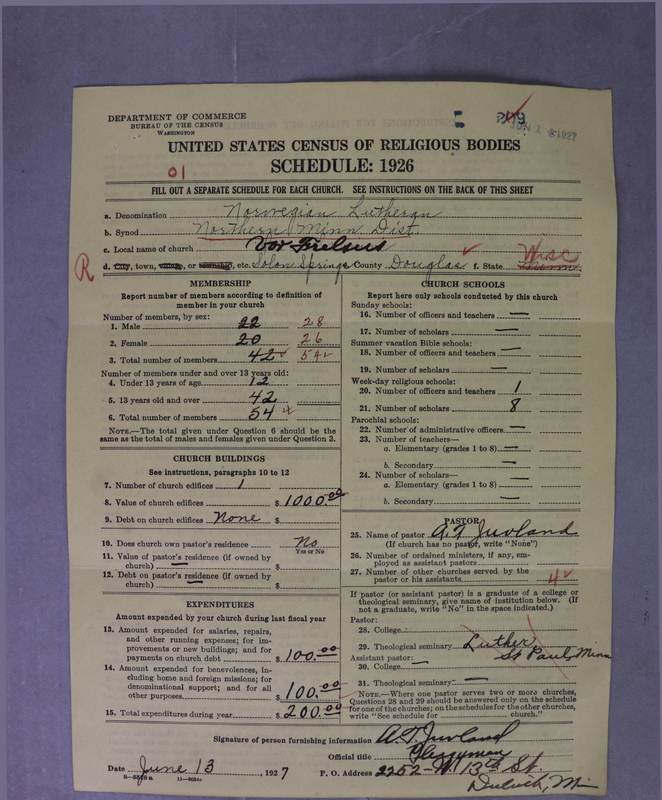 DEPARTMENT OF COMMERCE
BUREAU OF THE CENSUS
WASHINGTON
UNITED STATES CENSUS OF RELIGIOUS BODIES
SCHEDULE: 1926
01
FILL OUT A SEPARATE SCHEDULE FOR EACH CHURCH. SEE INSTRUCTIONS ON THE BACK OF THIS SHEET
a. Denomination Norwegian Lutheran
b. Synod Northern Minn Dist.
c. Local name of church Vor Frelsers
R
d. City, town, village, or township, etc. Solon Springs County Douglas f. State Minn. Wisc
MEMBERSHIP
Report number of members according to definition of
member in your church
Number of members, by sex:
1. Male 22 28
2. Female 20 26
3. Total number of members 42 54
Number of members under and over 13 years old:
4. Under 13 years of age 12
5. 13 years old and over 42
6. Total number of members 54
NOTE.—The total given under Question 6 should be the
same as the total of males and females given under Question 3.
CHURCH BUILDINGS
See instructions, paragraphs 10 to 12
7. Number of church edifices 1
8. Value of church edifices $1000.00
9. Debt on church edifices None $
10. Does church own pastor's residence No
Yes or No
11. Value of pastor's residence (if owned by
church) — $
12. Debt on pastor's residence (if owned by
church) — $
EXPENDITURES
Amount expended by your church during last fiscal year
13. Amount expended for salaries, repairs,
and other running expenses; for im-
provements or new buildings; and for
payments on church debt $100.00
14. Amount expended for benevolences, in-
cluding home and foreign missions; for
denominational support; and for all
other purposes $100.00
15. Total expenditures during year $200.00
CHURCH SCHOOLS
Report here only schools conducted by this church
Sunday schools:
16. Number of officers and teachers —
17. Number of scholars —
Summer vacation Bible schools:
18. Number of officers and teachers —
19. Number of scholars —
Week-day religious schools:
20. Number of officers and teachers 1
21. Number of scholars 8
Parochial schools:
22. Number of administrative officers —
23. Number of teachers—
a. Elementary (grades 1 to 8) —
b. Secondary —
24. Number of scholars—
a. Elementary (grades 1 to 8) —
b. Secondary —
PASTOR
25. Name of pastor A. T. Juvland
(If church has no pastor, write "None")
26. Number of ordained ministers, if any, em-
ployed as assistant pastors
27. Number of other churches served by the
pastor or his assistants 4
If pastor (or assistant pastor) is a graduate of a college or
theological seminary, give name of institution below. (If
not a graduate, write "No" in the space indicated.)
Pastor:
28. College
29. Theological seminary Luther
St Paul, Minn
Assistant pastor:
30. College —
31. Theological seminary —
NOTE.—Where one pastor serves two or more churches,
Questions 28 and 29 should be answered only on the schedule
for one of the churches; on the schedules for the other churches,
write "See schedule for church."
Signature of person furnishing information A. T. Juvland
Official title Clergyman
Date June 13, 1927 P. O. Address 2252-W. 13th St.
Duluth, Min